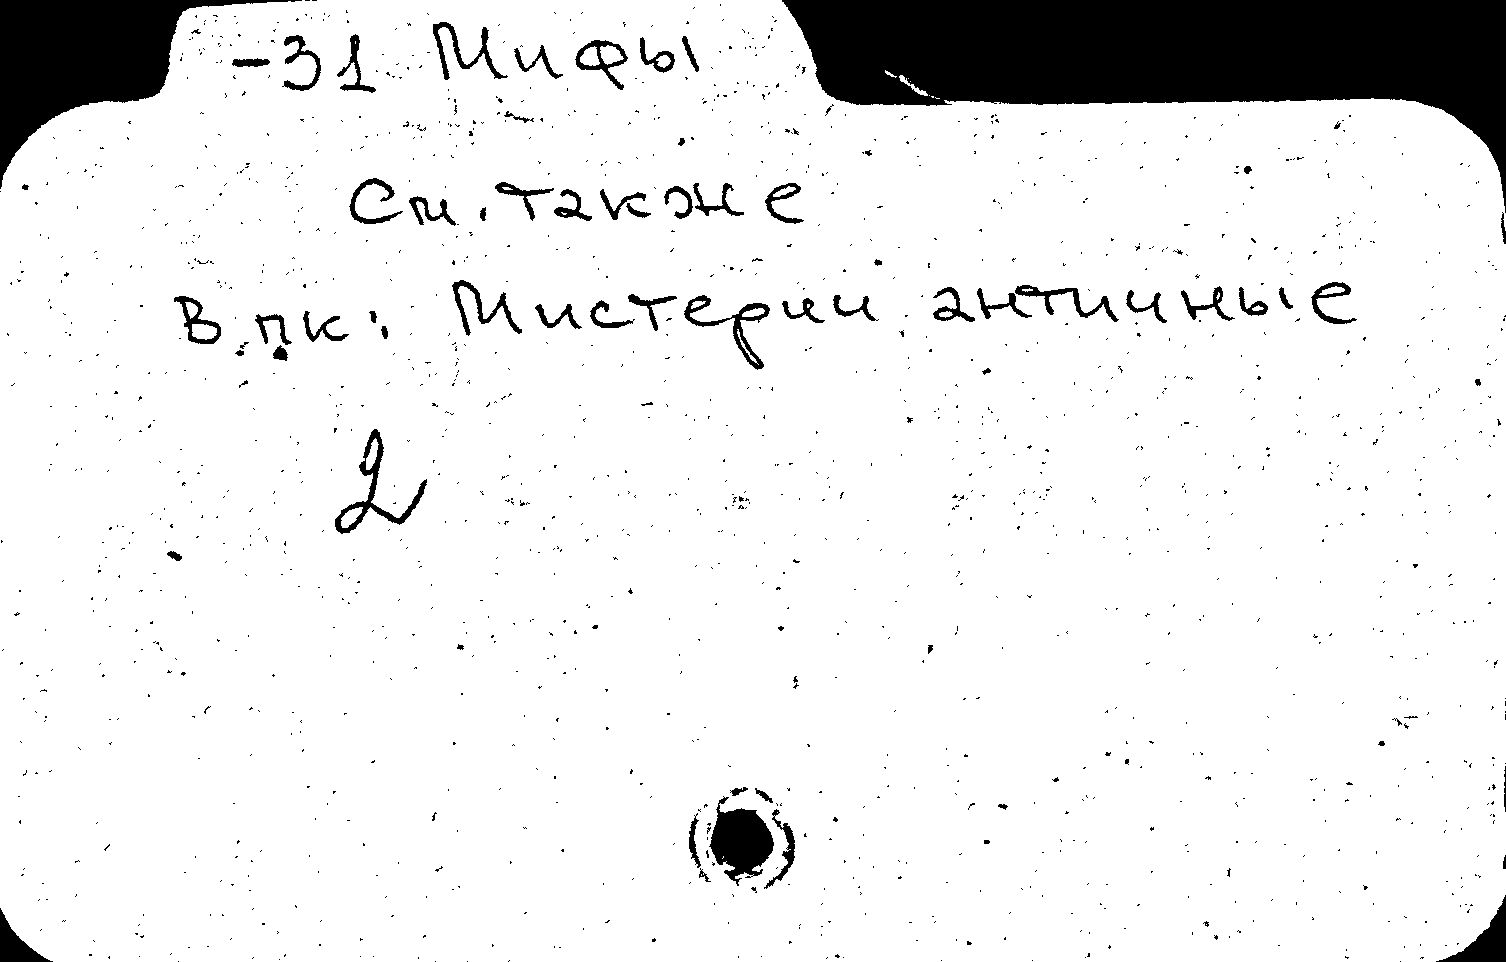 -31 Мифы
См. также
В пк: Мистерии античные
2